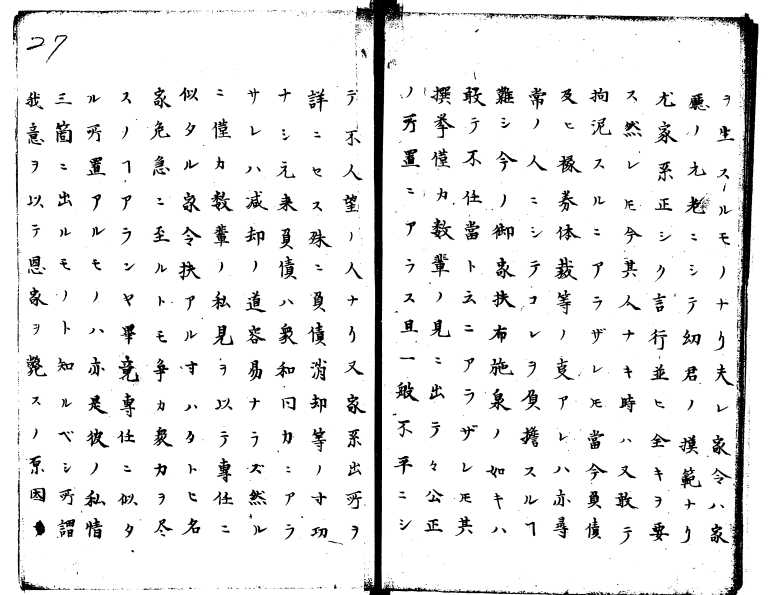 ヲ生スルモノナリ夫レ家令ハ家
廳ノ元老ニシテ幼君ノ摸範ナリ
尤家系正シク言行並ヒ全キヲ要
ス然レ𪜈今其人ナキ時ハ又敢テ
拘泥スルニアラザレ𪜈當今負債
及ヒ椽劵体裁等ノ㕝アレハ亦尋
常ノ人ニシテコレヲ負擔スルヿ
難シ今ノ御家扶布施泉ノ如キハ
敢テ不仕當ト云ニアラザレ𪜈其
撰挙僅カ数輩ノ見ニ出テ々公正
ノ所置ニアラス且一般不平ニシ
27
テ不人望ノ人ナリ又家系出所ヲ
詳ニセス殊ニ負債消却等ノ寸功
ナシ元来負債ハ衆和同カニアラ
サレハ减却ノ道容易ナラズ然ル
ニ僅カ数輩ノ私見ヲ以テ專任ニ
似タル家令扶アル寸ハタトヒ名
家危急ニ至ルトモ争カ衆力ヲ尽
スノヿアランヤ畢竟專任ニ似タ
ル所置アルモノハ亦是彼ノ私情
三箇ニ出ルモノト知ルベシ所謂
我意ヲ以テ恩家ヲ斃スノ原因